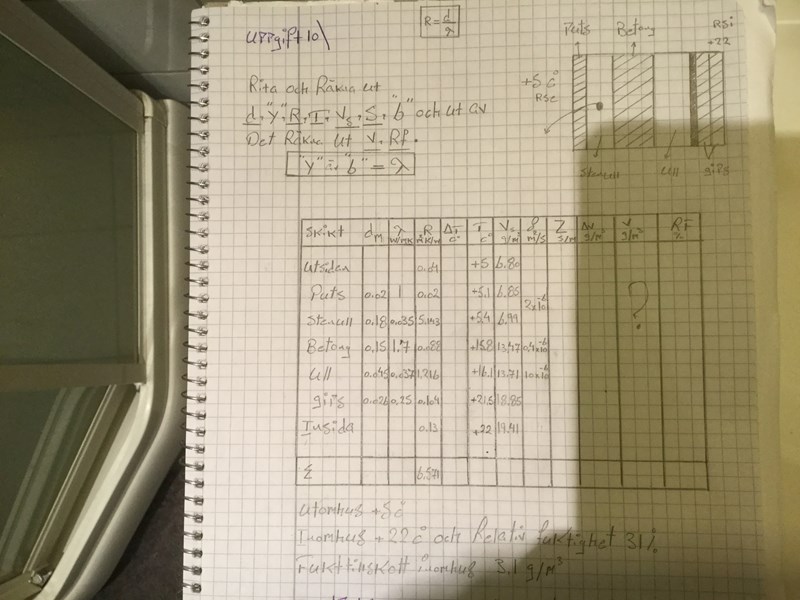 UPPgift 10\
R = d/λ
Puts Betong RSi
+22
+5 C°
RSe
Stenull Ull gips
Rita och Räkna ut
d, "Y", R, T, Vs, S, "b" och ut av
Det Räkna ut V, Rf.
"Y" = "b" = λ
Skikt dm λ W/mK R m²K/W ΔT C° T C° Vs g/m³ m²/s Z s/m Δv g/m³ V g/m³ RF %
Utsidan 0.04 +5 6.80
Puts 0.02 1 0.02 +5.1 6.85 2x10⁻⁶
Stenull 0.18 0.035 5.143 +5.4 6.99
Betong 0.15 1.7 0.088 +15.8 13.47 0.4x10⁻⁶
?
Ull 0.045 0.037 1.216 +16.1 13.71 10x10⁻⁶
gips 0.026 0.25 0.104 +21.5 18.85
Insida 0.13 +22 19.41
Σ
utomhus +5 C°
Inomhus +22 C° och Relativ fuktighet 31%
Fukttillskott inomhus 3.1 g/m³